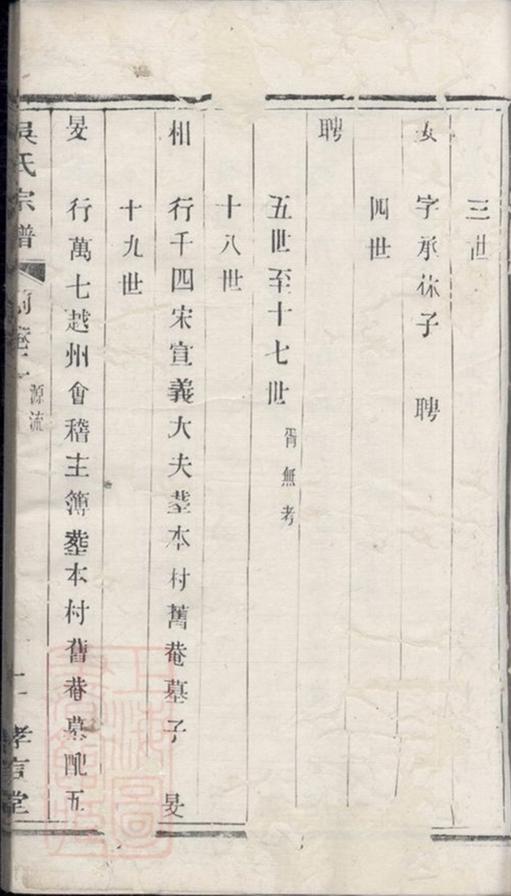 三世
字承休子　聘
四世
聘
五世至十七世 胥無考
十八世
相　行千四宋宣義大夫塟本村舊菴墓子　旻
十九世
旻　行萬七越州會稽主簿塟本村舊菴墓配五
吳氏宗譜
源流
孝言堂